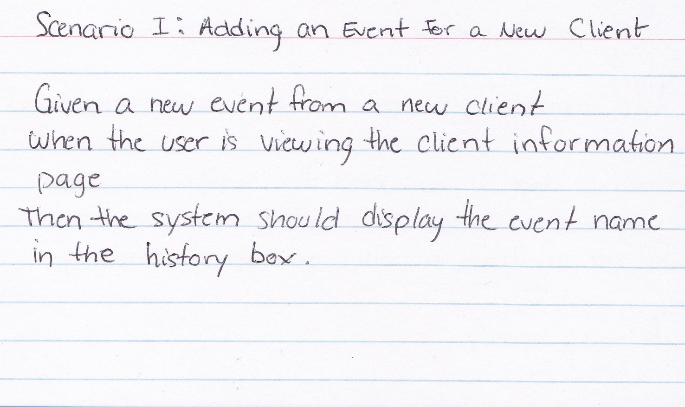 Scenario I: Adding an Event for a New Client
Given a new event from a new client
when the user is viewing the client information
page
Then the system should display the event name
in the history box.